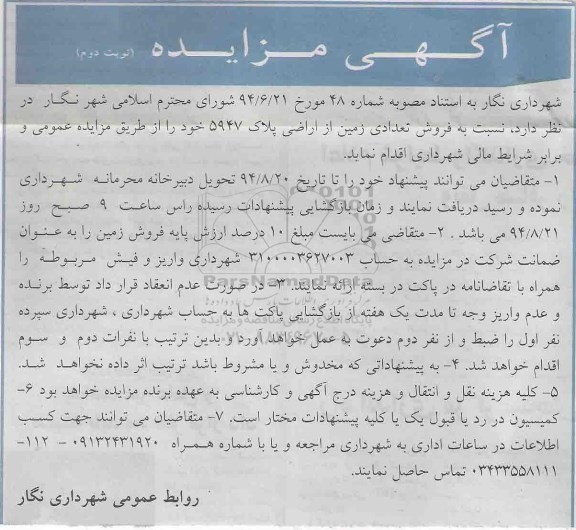 آگهی مزایده (نوبت دوم)
شهرداری نگار به استناد مصوبه شماره ۴۸ مورخ ۹۴/۶/۲۱ شورای محترم اسلامی شهر نگار در
نظر دارد، نسبت به فروش تعدادی زمین از اراضی پلاک ۵۹۴۷ خود را از طریق مزایده عمومی و
برابر شرایط مالی شهرداری اقدام نماید.
۱- متقاضیان می توانند پیشنهاد خود را تا تاریخ ۹۴/۸/۲۰ تحویل دبیرخانه محرمانه شهرداری
نموده و رسید دریافت نمایند و زمان بازگشایی پیشنهادات رسیده راس ساعت ۹ صبح روز
۹۴/۸/۲۱ می باشد . ۲- متقاضی می بایست مبلغ ۱۰ درصد ارزش پایه فروش زمین را به عنوان
ضمانت شرکت در مزایده به حساب ۳۱۰۰۰۰۳۶۲۷۰۰۳ شهرداری واریز و فیش مربوطه را
همراه با تقاضانامه در پاکت در بسته ارائه نمایند. ۳- در صورت عدم انعقاد قرار داد توسط برنده
و عدم واریز وجه تا مدت یک هفته از بازگشایی پاکت ها به حساب شهرداری ، شهرداری سپرده
نفر اول را ضبط و از نفر دوم دعوت به عمل خواهد آورد و بدین ترتیب با نفرات دوم و سوم
اقدام خواهد شد. ۴- به پیشنهاداتی که مخدوش و یا مشروط باشد ترتیب اثر داده نخواهد شد.
۵- کلیه هزینه نقل و انتقال و هزینه درج آگهی و کارشناسی به عهده برنده مزایده خواهد بود ۶-
کمیسیون در رد یا قبول یک یا کلیه پیشنهادات مختار است. ۷- متقاضیان می توانند جهت کسب
اطلاعات در ساعات اداری به شهرداری مراجعه و یا با شماره همراه ۰۹۱۳۲۴۳۱۹۲۰ – ۱۱۲-
۰۳۴۳۳۵۵۸۱۱۱ تماس حاصل نمایند.
روابط عمومی شهرداری نگار